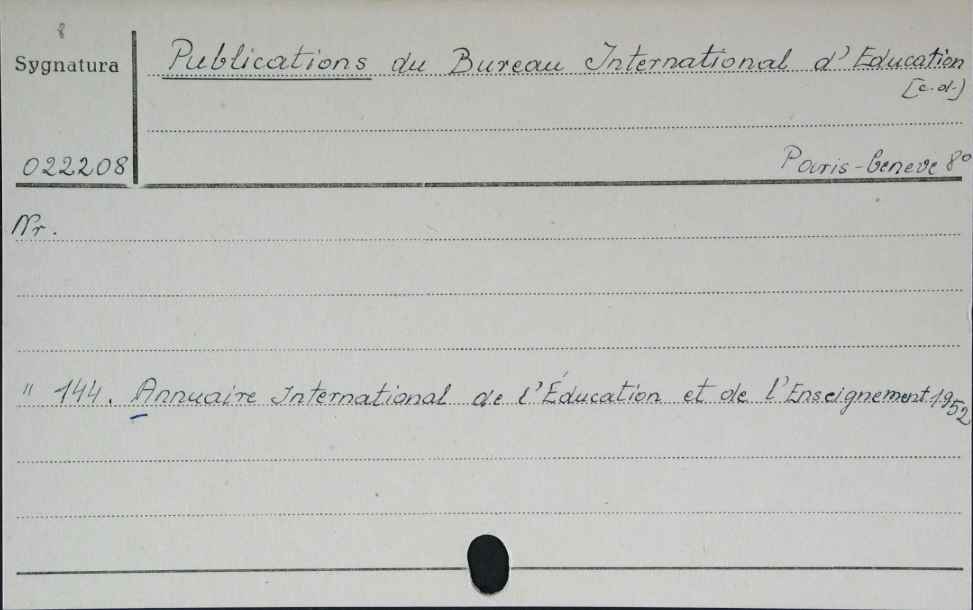 8
Sygnatura
Publications du Bureau International d'Education
[c.d.]
022208
Paris-Geneve 8°
Nr.
" 144. Annuaire International de l'Éducation et de l'Enseignement 1952